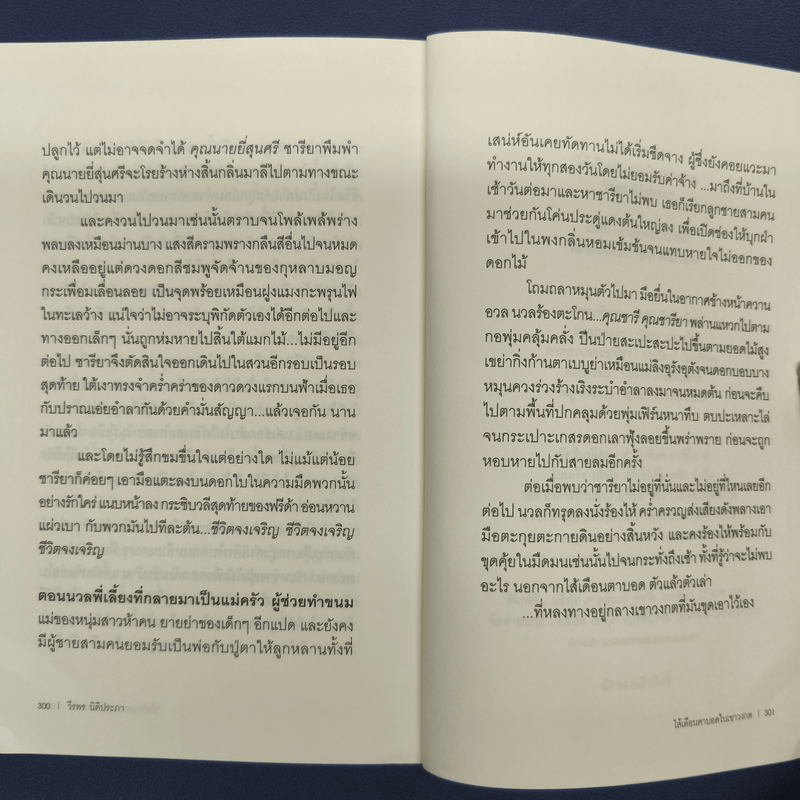 ปลูกไว้ แต่ไม่อาจจดจำได้ คุณนายยี่สุนศรี ชารียาพึมพำ
คุณนายยี่สุนศรีจะโรยร้างห่างสิ้นกลิ่นมาลีไปตามทางขณะ
เดินวนไปวนมา
และคงวนไปวนมาเช่นนั้นตราบจนโพล้เพล้พร่าง
พลบลงเหมือนม่านบาง แสงสีครามพรางกลืนสีอื่นไปจนหมด
คงเหลืออยู่แต่ดวงดอกสีชมพูจัดจ้านของกุหลาบมอญ
กระเพื่อมเลื่อนลอย เป็นจุดพร้อยเหมือนฝูงแมงกะพรุนไฟ
ในทะเลว้าง แน่ใจว่าไม่อาจระบุพิกัดตัวเองได้อีกต่อไปและ
ทางออกเล็กๆ นั่นถูกห่มหายไปสิ้นใต้แมกไม้...ไม่มีอยู่อีก
ต่อไป ชารียาจึงตัดสินใจออกเดินไปในสวนอีกรอบเป็นรอบ
สุดท้าย ใต้เงาทรงจำคร่ำคร่าของดาวดวงแรกบนฟ้าเมื่อเธอ
กับปราณเอ่ยอำลากันด้วยคำมั่นสัญญา...แล้วเจอกัน นาน
มาแล้ว
และโดยไม่รู้สึกขมขื่นใจแต่อย่างใด ไม่แม้แต่น้อย
ชารียาก็ค่อยๆ เอามือแตะลงบนดอกใบในความมืดพวกนั้น
อย่างรักใคร่ แนบหน้าลง กระซิบวลีสุดท้ายของฟรีด้า อ่อนหวาน
แผ่วเบา กับพวกมันไปทีละต้น...ชีวิตจงเจริญ ชีวิตจงเจริญ
ชีวิตจงเจริญ
ตอนนวลพี่เลี้ยงที่กลายมาเป็นแม่ครัว ผู้ช่วยทำขนม
แม่ของหนุ่มสาวห้าคน ยายย่าของเด็กๆ อีกแปด และยังคง
มีผู้ชายสามคนยอมรับเป็นพ่อกับปู่ตาให้ลูกหลานทั้งที่
300 | วีรพร นิติประภา
เสน่ห์อันเคยทัดทานไม่ได้เริ่มซีดจาง ผู้ซึ่งยังคอยแวะมา
ทำงานให้ทุกสองวันโดยไม่ยอมรับค่าจ้าง ...มาถึงที่บ้านใน
เช้าวันต่อมาและหาชารียาไม่พบ เธอก็เรียกลูกชายสามคน
มาช่วยกันโค่นประดู่แดงต้นใหญ่ลง เพื่อเปิดช่องให้บุกฝ่า
เข้าไปในพงกลิ่นหอมเข้มข้นจนแทบหายใจไม่ออกของ
ดอกไม้
โถมถลาหมุนตัวไปมา มือยื่นในอากาศข้างหน้าควาน
อวล นวลร้องตะโกน...คุณชารี คุณชารียา พล่านแหวกไปตาม
กอพุ่มคลุ้มคลั่ง ปีนป่ายสะเปะสะปะไปขึ้นตามยอดไม้สูง
เขย่ากิ่งก้านตาเบบูย่าเหมือนแม่ลิงอุรังอุตังจนดอกบอบบาง
หมุนควงร่วงร้างเริงระบำอำลาลงมาจนหมดต้น ก่อนจะคืบ
ไปตามพื้นที่ปกคลุมด้วยพุ่มเฟิร์นหนาทึบ ตบปะเหลาะไล่
จนกระเปาะเกสรดอกเลาฟุ้งลอยขึ้นพร่าพราย ก่อนจะถูก
หอบหายไปกับสายลมอีกครั้ง
ต่อเมื่อพบว่าชารียาไม่อยู่ที่นั่นและไม่อยู่ที่ไหนเลยอีก
ต่อไป นวลก็ทรุดลงนั่งร้องไห้ คร่ำครวญส่งเสียงดังพลางเอา
มือตะกุยตะกายดินอย่างสิ้นหวัง และคงร้องไห้พร้อมกับ
ขุดคุ้ยในมืดมนเช่นนั้นไปจนกระทั่งถึงเช้า ทั้งที่รู้ว่าจะไม่พบ
อะไร นอกจากไส้เดือนตาบอด ตัวแล้วตัวเล่า
...ที่หลงทางอยู่กลางเขาวงกตที่มันขุดเอาไว้เอง
ไส้เดือนตาบอดในเขาวงกต | 301